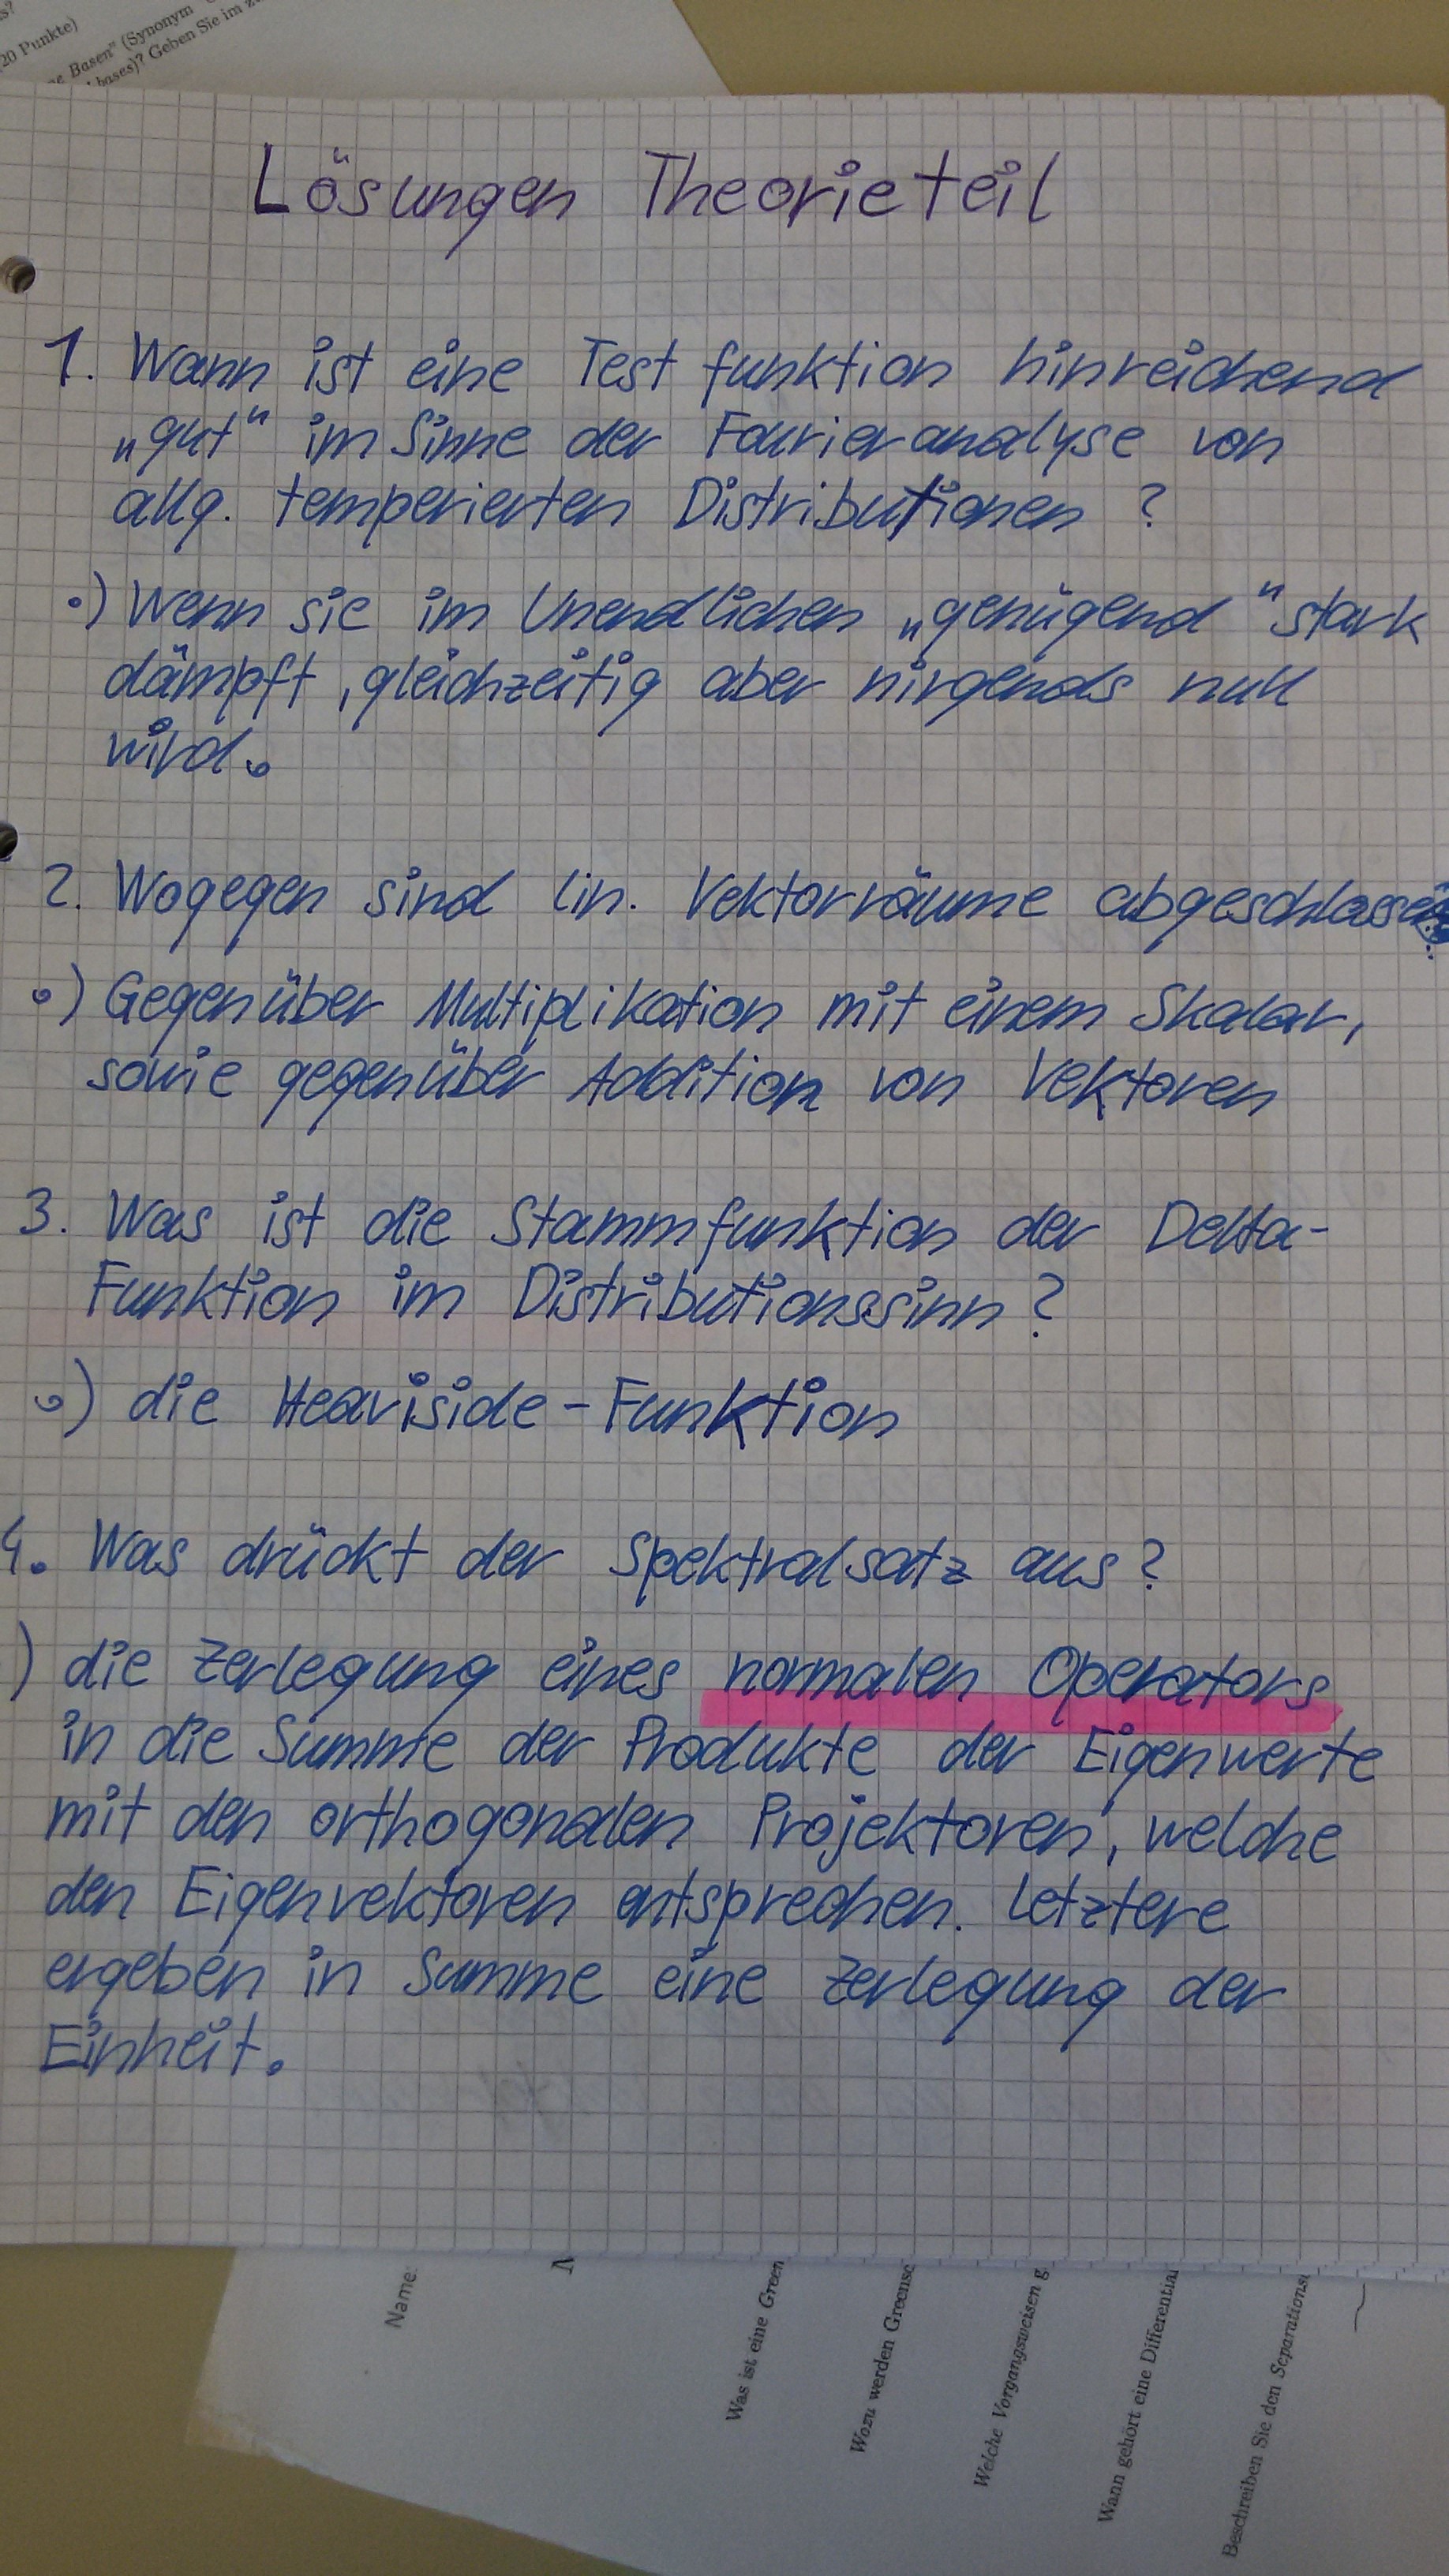 20 Punkte)
Basen" (Synonym
bases)? Geben Sie im
Lösungen Theorieteil
1. Wann ist eine Testfunktion hinreichend
„gut“ im Sinne der Fourieranalyse von
allg. temperierten Distributionen ?
•) Wenn sie im Unendlichen „genügend“ stark
dämpft, gleichzeitig aber nirgends null
wird.
2. Wogegen sind lin. Vektorräume abgeschlossen
•) Gegenüber Multiplikation mit einem Skalar,
sowie gegenüber Addition von Vektoren
3. Was ist die Stammfunktion der Delta-
Funktion im Distributionssinn ?
•) die Heaviside-Funktion
4. Was drückt der Spektralsatz aus ?
) die Zerlegung eines normalen Operators
in die Summe der Produkte der Eigenwerte
mit den orthogonalen Projektoren, welche
den Eigenvektoren entsprechen. Letztere
ergeben in Summe eine Zerlegung der
Einheit.
Name:
Was ist eine Green
Wozu werden Greensc
Welche Vorgangsweisen g
Wann gehört eine Differential
Beschreiben Sie den Separations